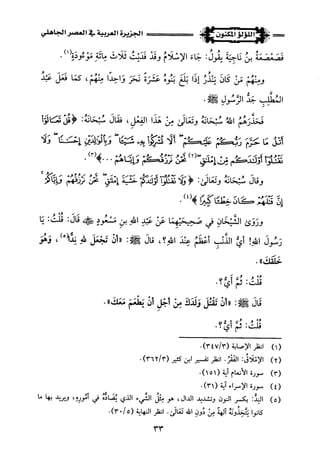 اللؤلؤ المكنون
الجزيرة العربية في العصر الجاهلي
فَصَعْصَعَةُ بنُ نَاجِيَةَ يقُولُ: جَاءَ الإِسْلَامُ وقَدْ فَدَيْتُ ثَلَاثَ مِائَةِ مَوْءُودَةٍ(١).
ومِنْهُم مَنْ كَانَ يَنْذُرُ إذَا بَلَغَ بَنُوهُ عَشَرَةً نَحَرَ وَاحِدًا مِنْهُم، كمَا فَعَلَ عَبْدُ
المُطَّلِبِ جَدُّ الرَّسُولِ ﷺ.
فَحَذَّرَهُمُ اللهُ سُبْحَانَهُ وتَعَالَى مِنْ هذَا الفِعْلِ، فقَالَ سُبْحَانَهُ: ﴿قُلْ تَعَالَوْا
أَتْلُ مَا حَرَّمَ رَبُّكُمْ عَلَيْكُمْ أَلَّا تُشْرِكُوا بِهِ شَيْئًا وَبِالْوَالِدَيْنِ إِحْسَانًا وَلَا
تَقْتُلُوا أَوْلَادَكُم مِّنْ إِمْلَاقٍ(٢) نَّحْنُ نَرْزُقُكُمْ وَإِيَّاهُمْ...﴾(٣).
وقَالَ سُبْحَانَهُ وتَعَالَى: ﴿وَلَا تَقْتُلُوا أَوْلَادَكُمْ خَشْيَةَ إِمْلَاقٍ نَّحْنُ نَرْزُقُهُمْ وَإِيَّاكُمْ
إِنَّ قَتْلَهُمْ كَانَ خِطْئًا كَبِيرًا﴾(٤).
ورَوَى الشَّيْخَانِ في صَحِيحَيْهِمَا عَنْ عَبْدِ اللهِ بنِ مَسْعُودٍ ﷺ قَالَ: قُلْتُ: يَا
رَسُولَ اللهِ! أيُّ الذَّنْبِ أعْظَمُ عِنْدَ اللهِ؟، قَالَ ﷺ: «أنْ تَجْعَلَ للهِ نِدًّا(٥)، وَهُوَ
خَلَقَكَ».
قُلْتُ: ثُمَّ أيُّ؟.
قَالَ ﷺ: «أنْ تَقْتُلَ وَلَدَكَ مِنْ أجْلِ أنْ يَطْعَمَ مَعَكَ».
قُلْتُ: ثُمَّ أيُّ؟.
(١) انظر الإصابة (٣/٣٤٧).
(٢) الإمْلَاقُ: الفَقْرُ. انظر تفسير ابن كثير (٣/٣٦٢).
(٣) سورة الأنعام آية (١٥١).
(٤) سورة الإسراء آية (٣١).
(٥) النِّدُّ: بكسر النون وتشديد الدال، هو مِثْلُ الشَّيء الذي يُضَادُّهُ في أمُورِهِ، ويريد بها ما
كانوا يَتَّخِذُونَهُ آلهةً مِنْ دُونِ اللهِ تَعَالَى. انظر النهاية (٥/٣٠).
٣٣